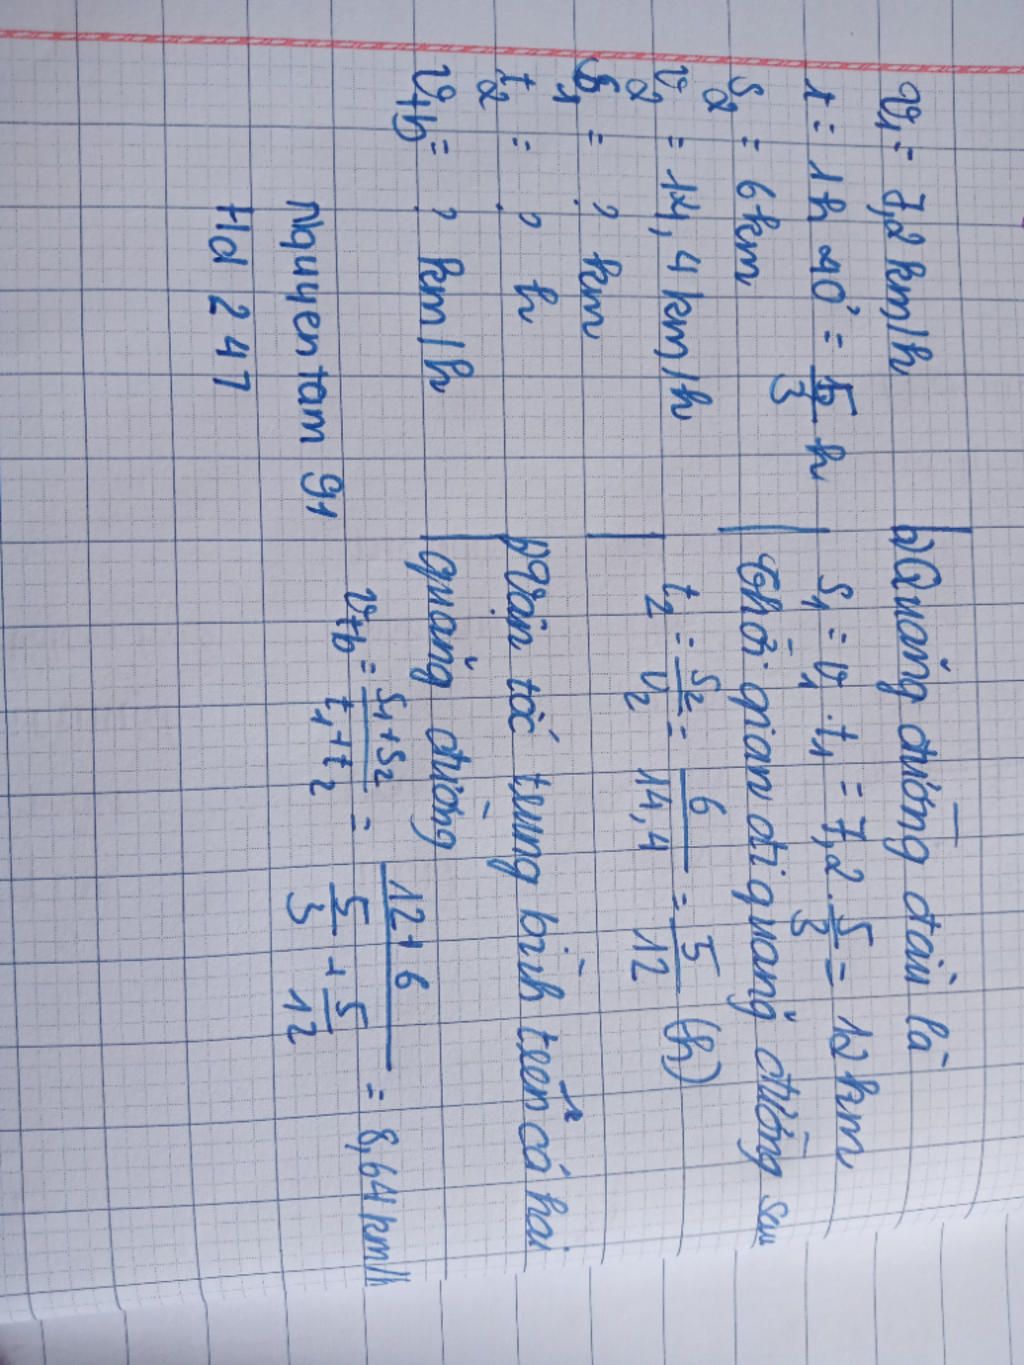 v₁ = 7,2 km/h
t = 1h 40' = 5/3 h
s₂ = 6km
v₂ = 14,4 km/h
s₁ = ? km
t₂ = ? h
v+b = ? km/h
Nguyen tam 91
Hd 247
a) Quãng đường đầu là
s₁ = v₁ . t₁ = 7,2 . 5/3 = 12 km
Thời gian đi quãng đường sau
t₂ = s₂/v₂ = 6/14,4 = 5/12 (h)
b) Vận tốc trung bình trên cả hai
quãng đường
v+b = (s₁+s₂)/(t₁+t₂) = (12+6)/(5/3 + 5/12) = 8,64 km/h